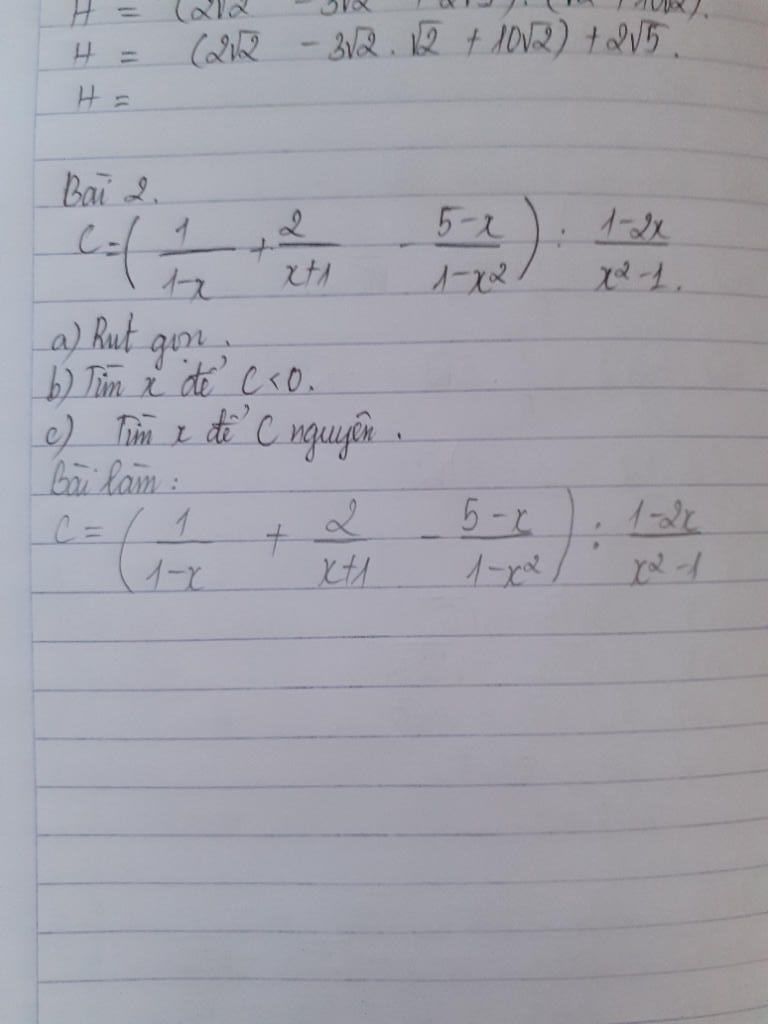 H = (2√2 - 3√2
H = (2√2 - 3√2 . √2 + 10√2) + 2√5.
H =
Bài 2.
C = ( 1/(1-x) + 2/(x+1) - (5-x)/(1-x²) ) : (1-2x)/(x²-1).
a) Rut gọn.
b) Tìm x để C < 0.
c) Tìm x để C nguyên.
Bài làm:
C = ( 1/(1-x) + 2/(x+1) - (5-x)/(1-x²) ) : (1-2x)/(x²-1)